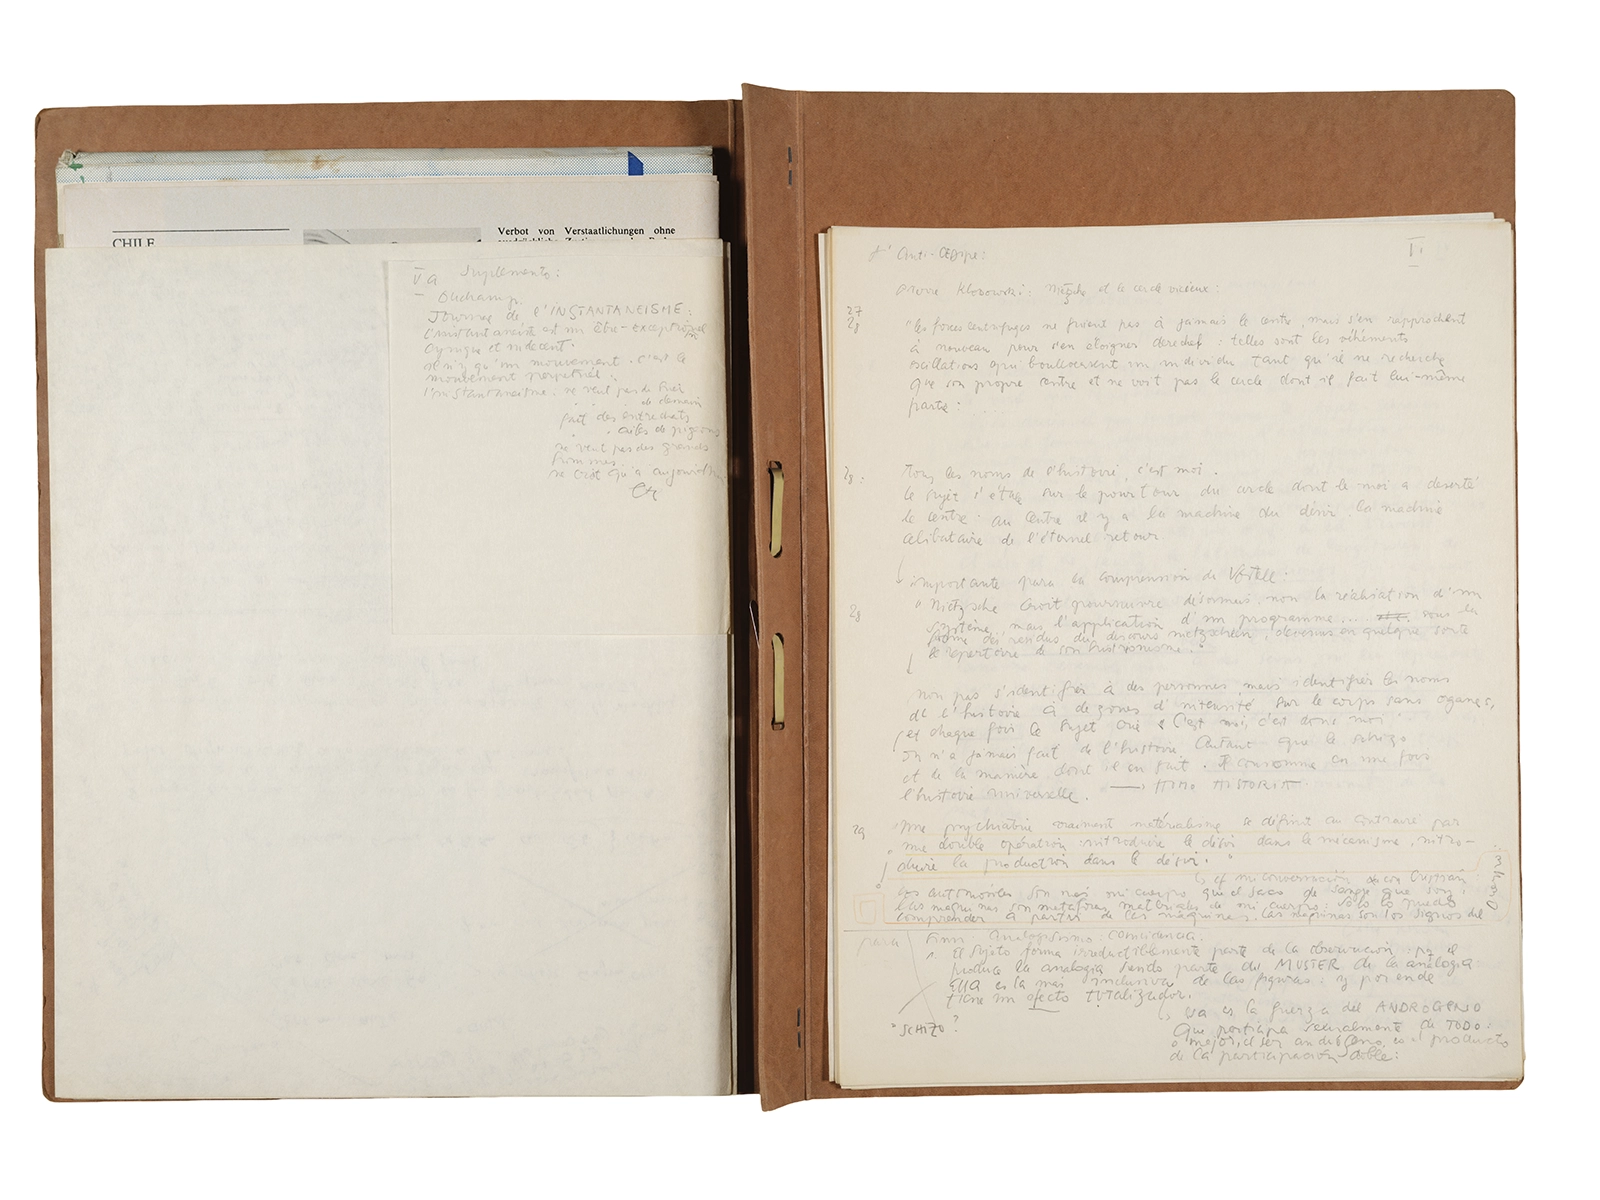 CHILE
Verbot von Verstaatlichungen ohne
V a Suplemento:
Duchamp.
Journal de l'INSTANTANEISME:
l'instantaneiste est un être exceptionnel
Cynique et indecent.
il n'y qu'un mouvement. c'est le
mouvement perpetuel:
l'instantaneisme: ne veut pas de hier
de demain
fait des entrechats
ailes de pigeons
ne veut pas des grands
hommes
ne croit qu'a aujourd'hui
etc
L'Anti-Oedipe: I.
Pierre Klossowski: Nietzsche et le cercle vicieux:
27
28
"les forces centrifuges ne fuient pas à jamais le centre, mais s'en rapprochent
à nouveau pour s'en éloigner derechef: telles sont les véhéments
oscillations qui bouleversent un individu tant qu'il ne recherche
que son propre centre et ne voit pas le cercle dont il fait lui-même
partie:
28: Tous les noms de l'histoire, c'est moi.
le sujet s'étale sur le pourtour du cercle dont le moi a deserté
le centre. au centre il y a la machine du désir. la machine
célibataire de l'éternel retour
importante para la comprension de
28 "Nietzsche croit poursuivre désormais non la réalisation d'un
système, mais l'application d'un programme.... sous la
forme des résidus du discours nietzscheen, devenus en quelque sorte
le repertoire de son histrionisme."
non pas s'identifier à des personnes, mais identifier les noms
de l'histoire à de zones d'intensité sur le corps sans oganes,
et chaque fois le sujet crie "C'est moi, c'est donc moi"
On n'a jamais fait de l'histoire autant que le schizo
et de la manière dont il en fait. Il consomme en une fois
l'histoire universelle. — HOMO HISTORIA
29 "Une psychiatrie vraiment matérialisme se définit au contraire par
une double opération: introduire le désir dans le mécanisme, intro-
duire la production dans le désir."
cf mi conversación con
los automóviles son más mi cuerpo que el saco de sangre que soy:
las maquinas son metaforas materiales de mi cuerpo: solo lo puedo
comprender a partir de las máquinas. las máquinas son los signos del
para Analogismo: coincidencia:
1. El sujeto forma irreductiblemente parte de la observación: pq el
produce la analogía siendo parte del MUSTER de la analogía
ella es la mas inclusiva de las figuras: y por ende
tiene un efecto totalizador.
"SCHIZO"?
esa es la fuerza del ANDROGENIO
que participa sexualmente de TODO:
o mejor, el ser es el producto
de la participación doble: